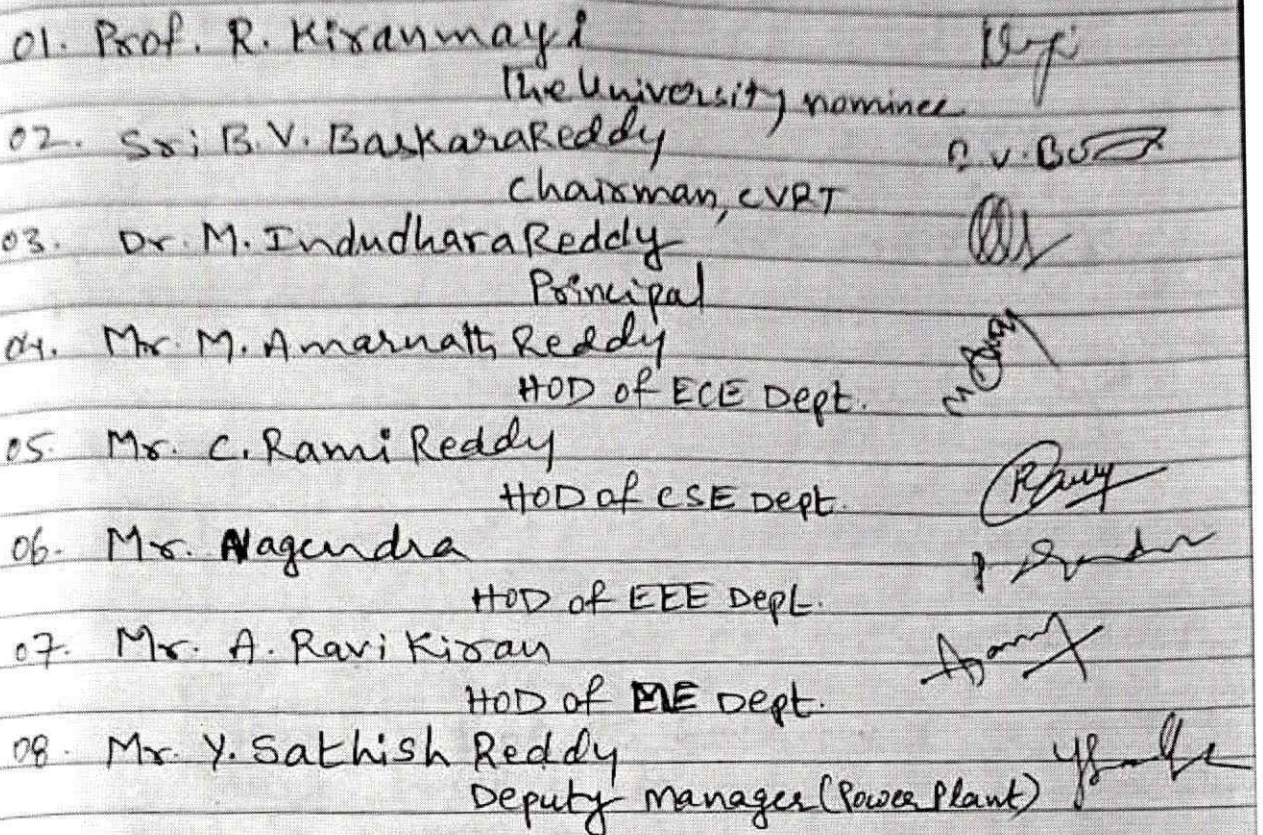 01. Prof. R. Kiranmayi
The University nominee
02. Sri B. V. BaskaraReddy
B.V.B
Chairman, CVRT
03. Dr. M. IndudharaReddy
Principal
04. Mr. M. Amarnath Reddy
HOD of ECE Dept.
05. Mr. C. Rami Reddy
HOD of CSE Dept.
06. Mr. Nagendra
HOD of EEE Dept.
07. Mr. A. Ravi Kiran
HOD of ME Dept.
08. Mr. Y. Sathish Reddy
Deputy Manager (Power Plant)